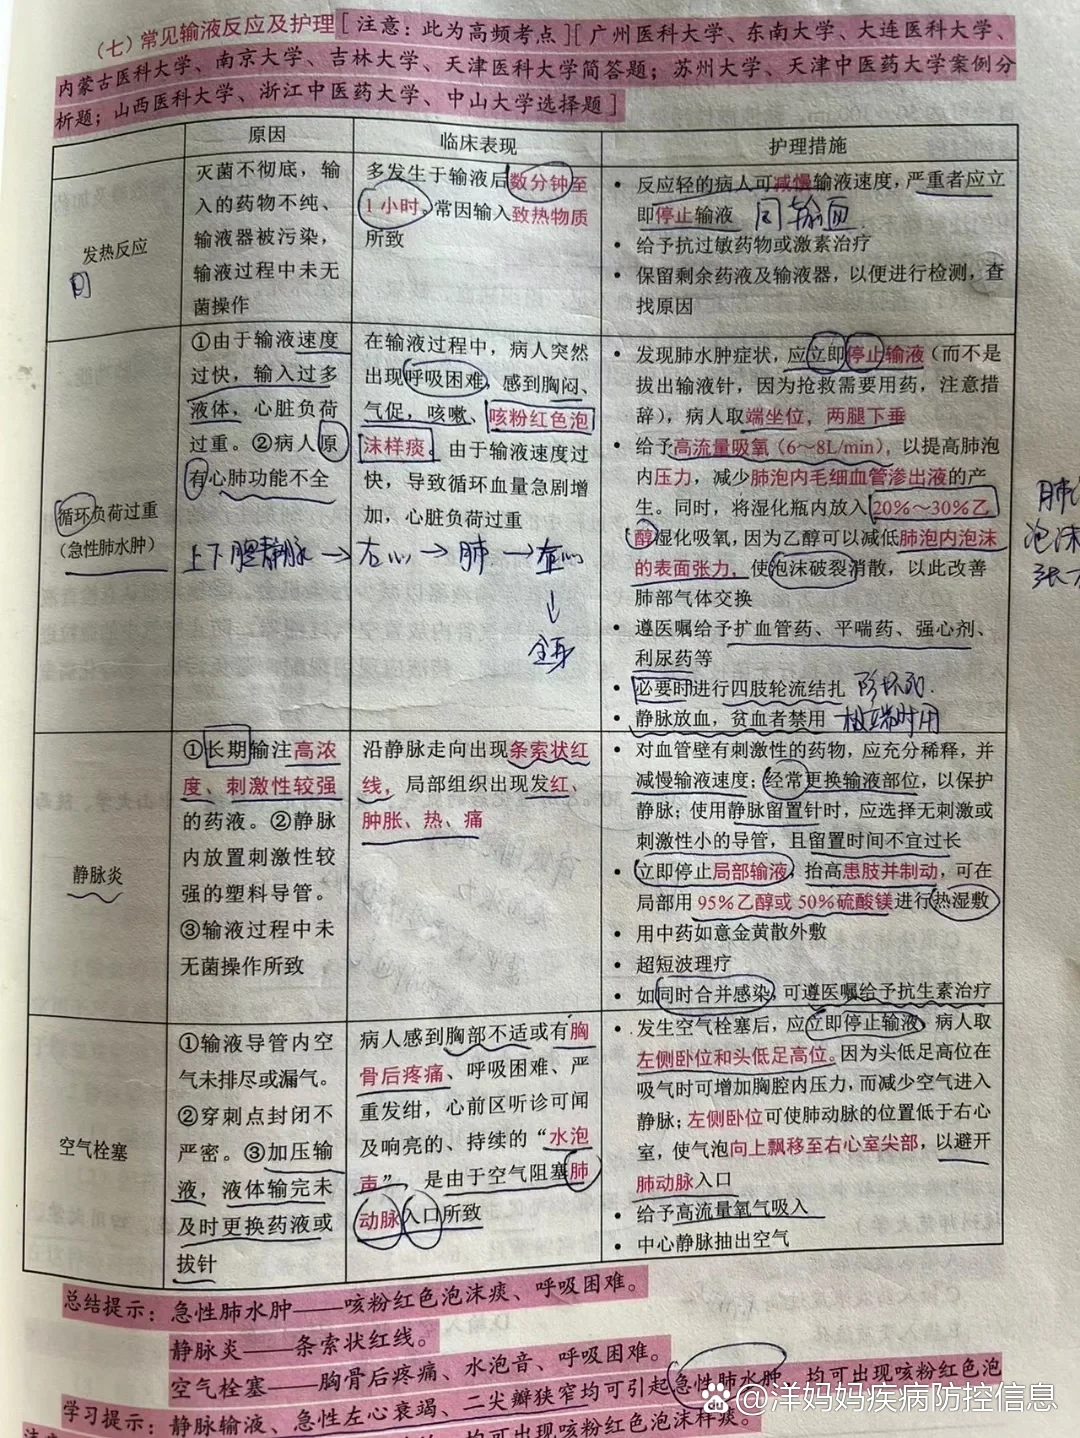 （七）常见输液反应及护理［注意：此为高频考点］［广州医科大学、东南大学、大连医科大学、
内蒙古医科大学、南京大学、吉林大学、天津医科大学简答题；苏州大学、天津中医药大学案例分
析题；山西医科大学、浙江中医药大学、中山大学选择题］
原因
临床表现
护理措施
发热反应
灭菌不彻底，输
入的药物不纯、
输液器被污染，
输液过程中未无
菌操作
多发生于输液后数分钟至
1小时。常因输入致热物质
所致
• 反应轻的病人可减慢输液速度，严重者应立
即停止输液 同输血
• 给予抗过敏药物或激素治疗
• 保留剩余药液及输液器，以便进行检测，查
找原因
循环负荷过重
（急性肺水肿）
①由于输液速度
过快，输入过多
液体，心脏负荷
过重。②病人原
有心肺功能不全
在输液过程中，病人突然
出现呼吸困难，感到胸闷、
气促，咳嗽、咳粉红色泡
沫样痰。由于输液速度过
快，导致循环血量急剧增
加，心脏负荷过重
上下腔静脉→右心→肺→左心
↓
全身
• 发现肺水肿症状，应立即停止输液（而不是
拔出输液针，因为抢救需要用药，注意措
辞），病人取端坐位，两腿下垂
• 给予高流量吸氧（6～8L/min），以提高肺泡
内压力，减少肺泡内毛细血管渗出液的产
生。同时，将湿化瓶内放入20%～30%乙
醇湿化吸氧，因为乙醇可以减低肺泡内泡沫
的表面张力，使泡沫破裂消散，以此改善
肺部气体交换
• 遵医嘱给予扩血管药、平喘药、强心剂、
利尿药等
• 必要时进行四肢轮流结扎
• 静脉放血，贫血者禁用 极端时用
肺泡
泡沫
张力
静脉炎
①长期输注高浓
度、刺激性较强
的药液。②静脉
内放置刺激性较
强的塑料导管。
③输液过程中未
无菌操作所致
沿静脉走向出现条索状红
线，局部组织出现发红、
肿胀、热、痛
• 对血管壁有刺激性的药物，应充分稀释，并
减慢输液速度；经常更换输液部位，以保护
静脉；使用静脉留置针时，应选择无刺激或
刺激性小的导管，且留置时间不宜过长
• 立即停止局部输液，抬高患肢并制动，可在
局部用95%乙醇或50%硫酸镁进行热湿敷
• 用中药如意金黄散外敷
• 超短波理疗
• 如同时合并感染，可遵医嘱给予抗生素治疗
空气栓塞
①输液导管内空
气未排尽或漏气。
②穿刺点封闭不
严密。③加压输
液，液体输完未
及时更换药液或
拔针
病人感到胸部不适或有胸
骨后疼痛、呼吸困难、严
重发绀，心前区听诊可闻
及响亮的、持续的“水泡
声”，是由于空气阻塞肺
动脉入口所致
• 发生空气栓塞后，应立即停止输液，病人取
左侧卧位和头低足高位。因为头低足高位在
吸气时可增加胸腔内压力，而减少空气进入
静脉；左侧卧位可使肺动脉的位置低于右心
室，使气泡向上飘移至右心室尖部，以避开
肺动脉入口
• 给予高流量氧气吸入
• 中心静脉抽出空气
总结提示：急性肺水肿——咳粉红色泡沫痰、呼吸困难。
静脉炎——条索状红线。
空气栓塞——胸骨后疼痛、水泡音、呼吸困难。
学习提示：静脉输液、急性左心衰竭、二尖瓣狭窄均可引起急性肺水肿，均可出现咳粉红色泡
均可出现咳粉红色泡沫样痰。
洋妈妈疾病防控信息